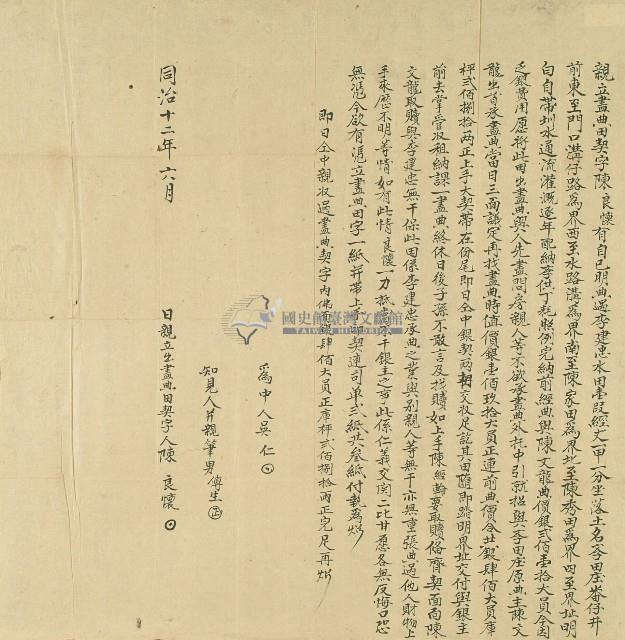 親立盡典田契字陳良懷有自己明典過李建忠水田壹段經丈一甲一分坐落土名季田庄崙仔井
前東至門口溝仔路為界西至水路溝為界南至陳家田為界北至陳秀田為界四至界址明
白自帶圳水通流灌溉逐年配納李供丁耗照例完納前經典與陳文龍典價銀貳佰壹拾大員今因
乏銀費用愿將此田出盡典與人先盡問房親人等不欲承盡典外托中引就招與季田庄原典主陳文
龍出首承盡典當日三面議定再找盡典時值價銀壹佰玖拾大員正連前典價合共銀肆佰大員庫
秤貳佰捌拾兩正上手大契帶在份尾即日仝中銀契兩相交收足訖其田隨即踏明界址交付與銀主
前去掌管收租納課一盡典終休日後子孫不敢言及找贖如上手陳經輪要取贖備齊契面向陳
文龍取贖與李建忠無干保此田係李建忠承典之業與別親人等無干亦無重張典過他人財物上
手來歷不明等情如有此情良懷一力抵當不干銀主之事此係仁義交関二比甘愿各無反悔口恐
無憑今欲有憑立盡典田字一紙并帶上手契連司單貳紙共叁紙付執為炤
即日仝中親收過盡典契字內佛銀肆佰大員正庫秤貳佰捌拾兩正完足再炤
為中人吳仁
知見人并親筆男傳生
日親立出盡典田契字人陳良懷
同治十二年六月
國史館臺灣文獻館
TAIWAN HISTORICA